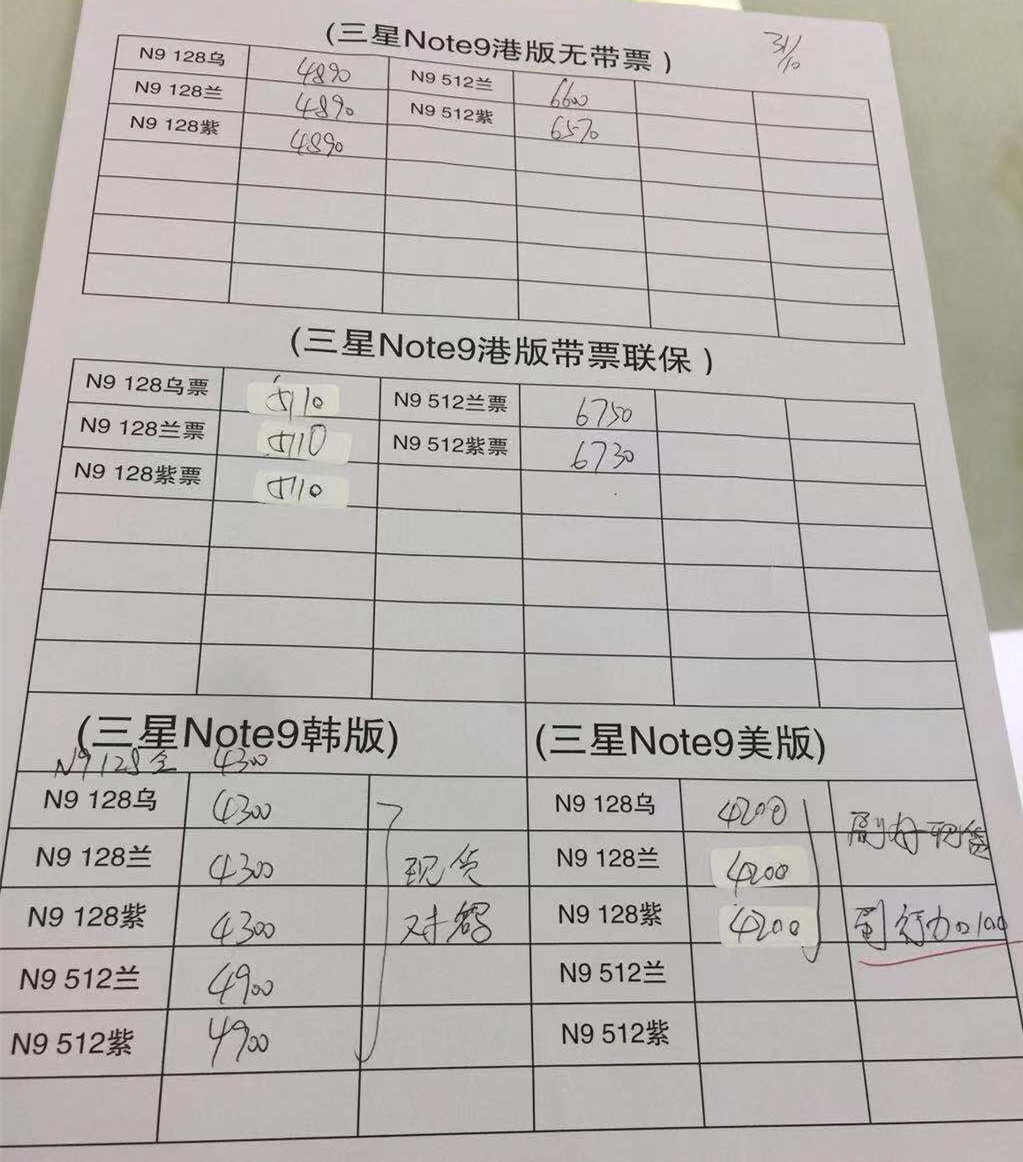 (三星Note9港版无带票)
31/10
N9 128乌 4890 N9 512兰 6600
N9 128兰 4890 N9 512紫 6570
N9 128紫 4890
(三星Note9港版带票联保)
N9 128乌票 5110 N9 512兰票 6750
N9 128兰票 5110 N9 512紫票 6730
N9 128紫票 5110
(三星Note9韩版)
N9 128全 4300
N9 128乌 4300
N9 128兰 4300 现货
N9 128紫 4300 对算
N9 512兰 4900
N9 512紫 4900
(三星Note9美版)
N9 128乌 4200 刷好现货
N9 128兰 4200
N9 128紫 4200 加100
N9 512兰
N9 512紫